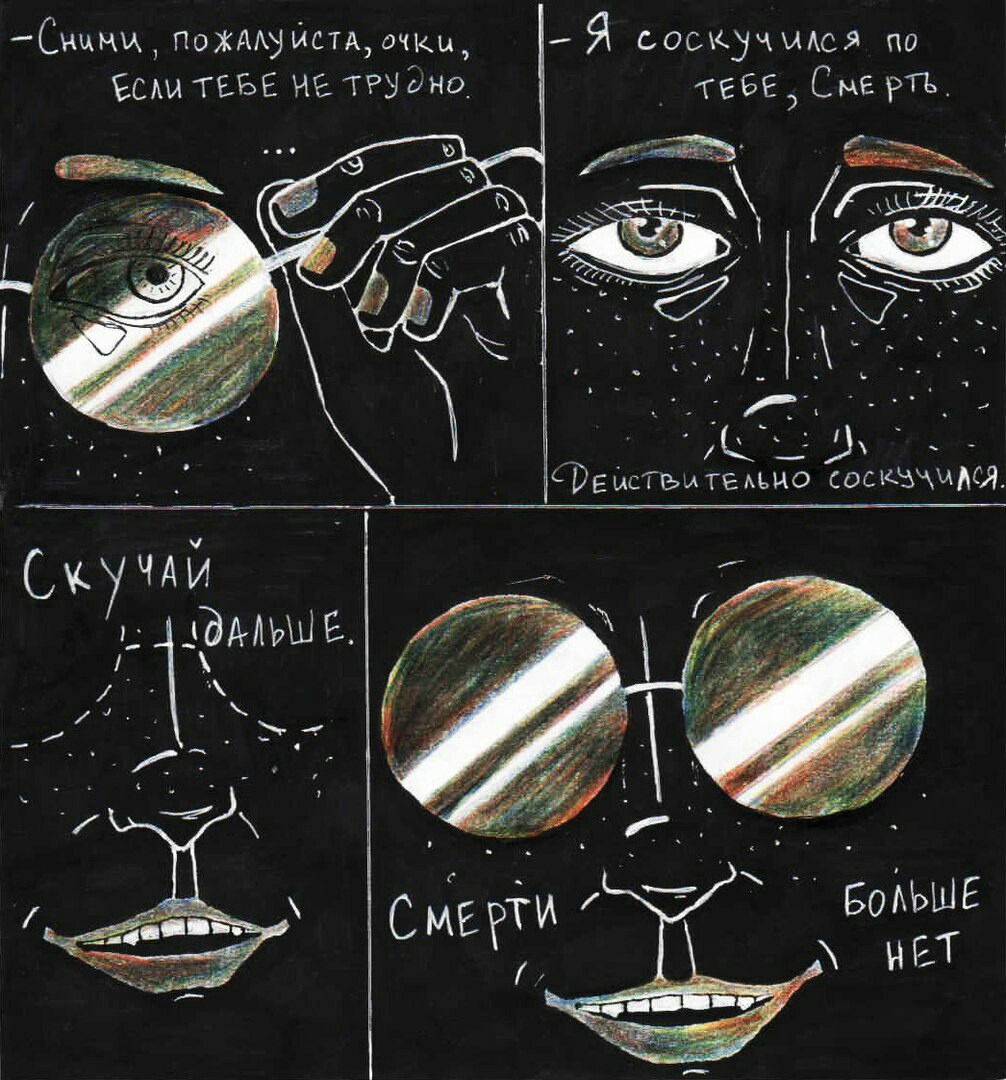 – Сними, пожалуйста, очки,
Если тебе не трудно.
...
– Я соскучился по
тебе, Смерть.
Действительно соскучился.
Скучай
дальше.
Смерти
больше
нет